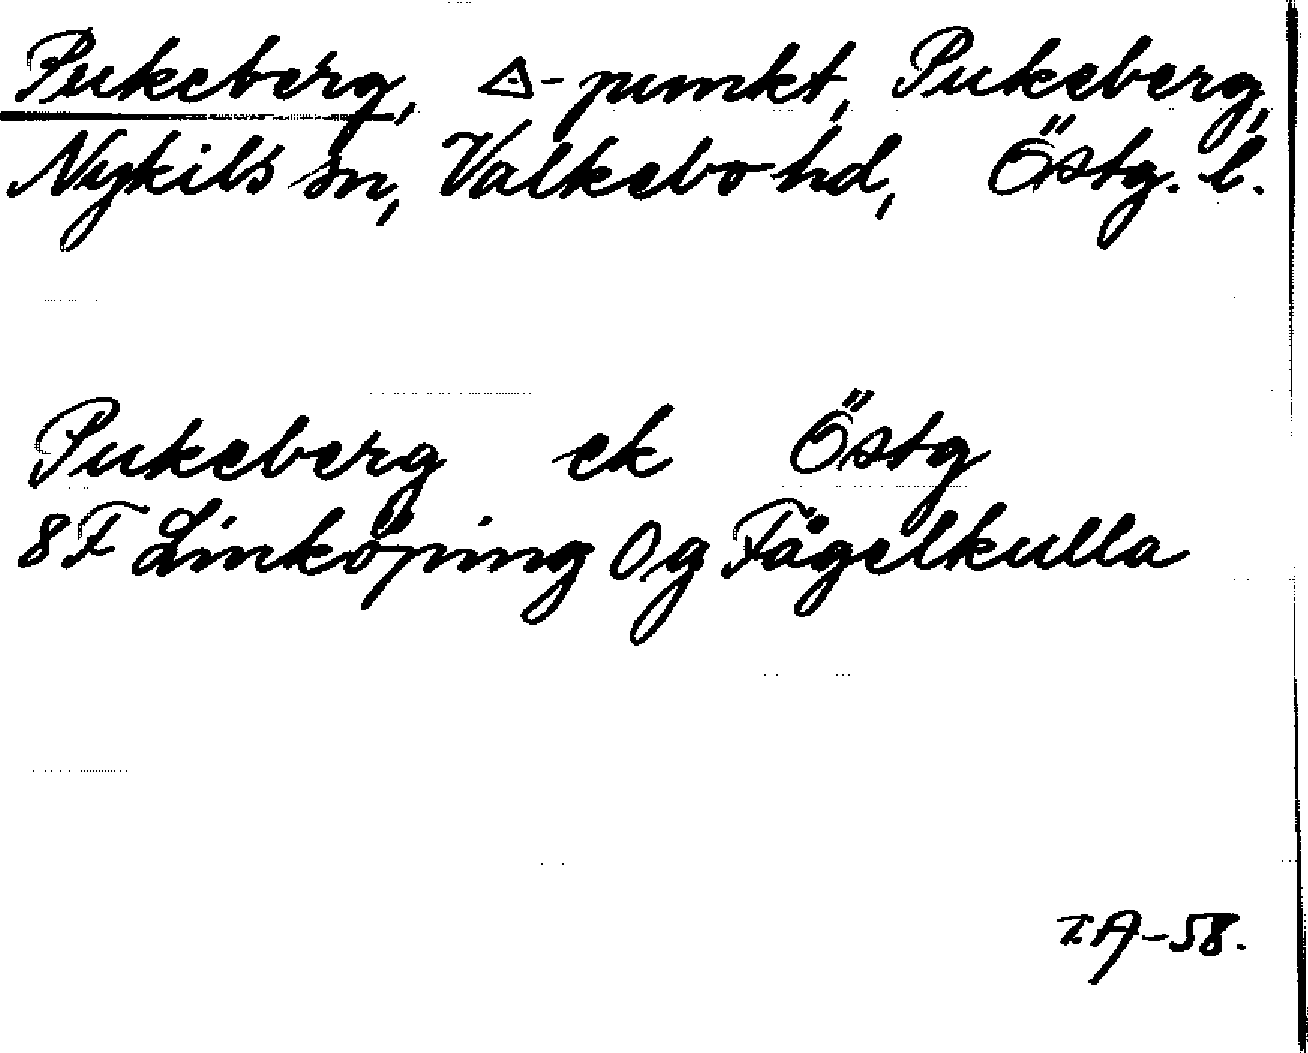 Pukeberg, △-punkt, Pukeberg,
Nykils sn, Valkebo hd, Östg. l.
Pukeberg ek Östg
8F Linköping 0g Fågelkulla
T.A-58.